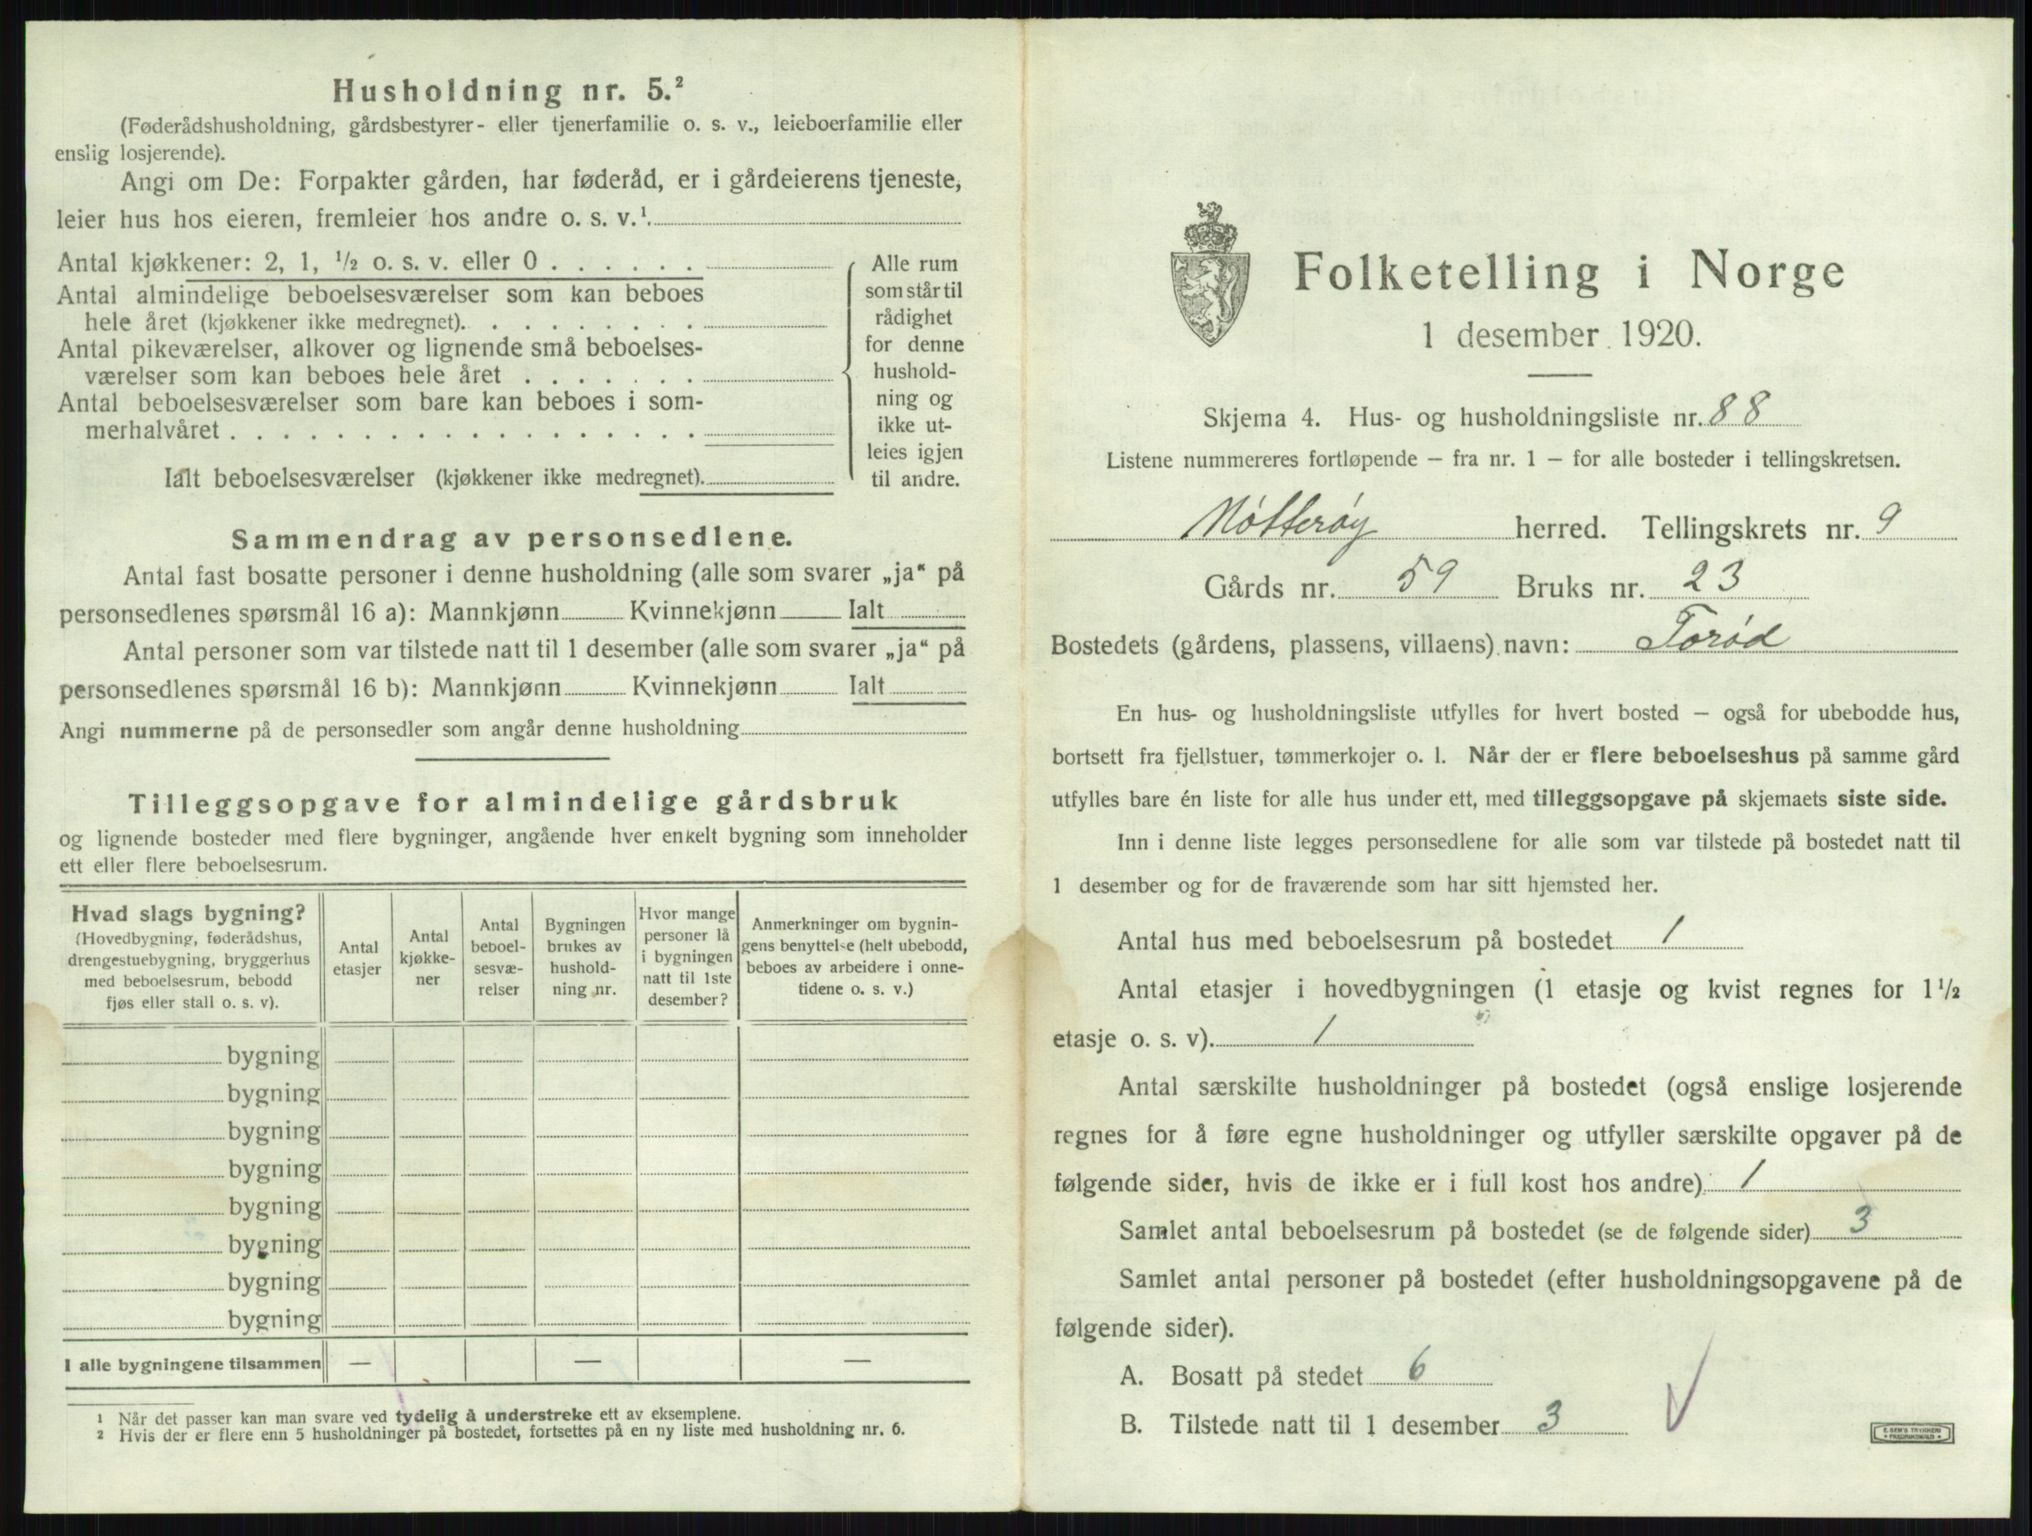 Husholdning nr. 5.²
(Føderådshusholdning, gårdsbestyrer- eller tjenerfamilie o. s. v., leieboerfamilie eller
enslig losjerende).
Angi om De: Forpakter gården, har føderåd, er i gårdeierens tjeneste,
leier hus hos eieren, fremleier hos andre o. s. v.¹
Antal kjøkkener: 2, 1, ½ o. s. v. eller 0 . . . . . .
Antal almindelige beboelsesværelser som kan beboes
hele året (kjøkkener ikke medregnet). . . . . . . . .
Antal pikeværelser, alkover og lignende små beboelses-
værelser som kan beboes hele året . . . . . . .
Antal beboelsesværelser som bare kan beboes i som-
merhalvåret . . . . . . . . . . . . . . . . . .
Ialt beboelsesværelser (kjøkkener ikke medregnet).
Alle rum
som står til
rådighet
for denne
hushold-
ning og
ikke ut-
leies igjen
til andre.
Sammendrag av personsedlene.
Antal fast bosatte personer i denne husholdning (alle som svarer „ja“ på
personsedlenes spørsmål 16 a): Mannkjønn Kvinnekjønn Ialt
Antal personer som var tilstede natt til 1 desember (alle som svarer „ja“ på
personsedlenes spørsmål 16 b): Mannkjønn Kvinnekjønn Ialt
Angi nummerne på de personsedler som angår denne husholdning
Tilleggsopgave for almindelige gårdsbruk
og lignende bosteder med flere bygninger, angående hver enkelt bygning som inneholder
ett eller flere beboelsesrum.
Hvad slags bygning?
(Hovedbygning, føderådshus,
drengestuebygning, bryggerhus
med beboelsesrum, bebodd
fjøs eller stall o. s. v).
Antal
etasjer
Antal
kjøkke-
ner
Antal
beboel-
sesvæ-
relser
Bygningen
brukes av
hushold-
ning nr.
Hvor mange
personer lå
i bygningen
natt til 1ste
desember?
Anmerkninger om bygnin-
gens benyttelse (helt ubebodd,
beboes av arbeidere i onne-
tidene o. s. v.)
bygning
bygning
bygning
bygning
bygning
bygning
bygning
bygning
I alle bygningene tilsammen — — —
1 Når det passer kan man svare ved tydelig å understreke ett av eksemplene.
2 Hvis der er flere enn 5 husholdninger på bostedet, fortsettes på en ny liste med husholdning nr. 6.
Folketelling i Norge
1 desember 1920.
Skjema 4. Hus- og husholdningsliste nr. 88
Listene nummereres fortløpende – fra nr. 1 – for alle bosteder i tellingskretsen.
Nøtterøy herred. Tellingskrets nr. 9
Gårds nr. 59 Bruks nr. 23
Bostedets (gårdens, plassens, villaens) navn: Torød
En hus- og husholdningsliste utfylles for hvert bosted – også for ubebodde hus,
bortsett fra fjellstuer, tømmerkojer o. l. Når der er flere beboelseshus på samme gård
utfylles bare én liste for alle hus under ett, med tilleggsopgave på skjemaets siste side.
Inn i denne liste legges personsedlene for alle som var tilstede på bostedet natt til
1 desember og for de fraværende som har sitt hjemsted her.
Antal hus med beboelsesrum på bostedet 1
Antal etasjer i hovedbygningen (1 etasje og kvist regnes for 1½
etasje o. s. v). 1
Antal særskilte husholdninger på bostedet (også enslige losjerende
regnes for å føre egne husholdninger og utfyller særskilte opgaver på de
følgende sider, hvis de ikke er i full kost hos andre) 1
Samlet antal beboelsesrum på bostedet (se de følgende sider) 3
Samlet antal personer på bostedet (efter husholdningsopgavene på de
følgende sider).
A. Bosatt på stedet 6
B. Tilstede natt til 1 desember 3
E. SEM'S TRYKKERI
FREDRIKSHALD